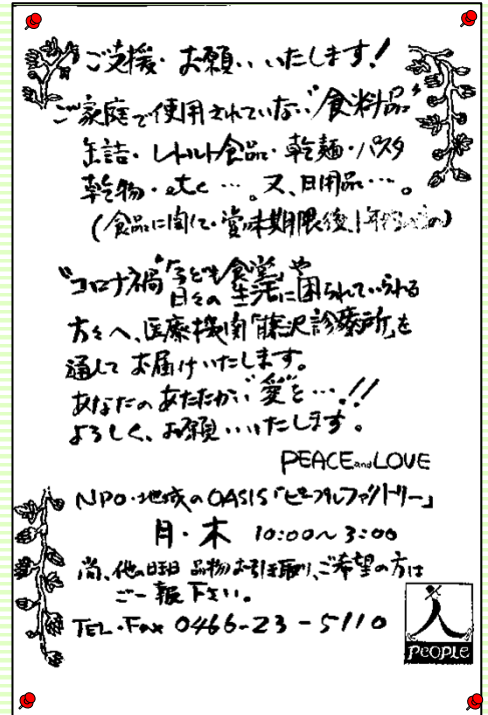 ご支援・お願いいたします!
ご家庭で使用されていない"食料品"
缶詰・レトルト食品・乾麺・パスタ
乾物・etc…。又、日用品…。
(食品に関して・賞味期限後、1年
"コロナ禍"子ども食堂」や
日々の生活に困られていられる
方々へ、医療機関「藤沢診療所」を
通してお届けいたします。
あなたのあたたかい"愛"を…!!
よろしく、お願いいたします。
PEACE and LOVE
NPO・地域のOASIS「ピープルファクトリー」
月・木 10:00〜3:00
尚、他の曜日 品物お引き取り、ご希望の方は
ご一報下さい。
TEL・Fax 0466-23-5110
人
PEOPLE